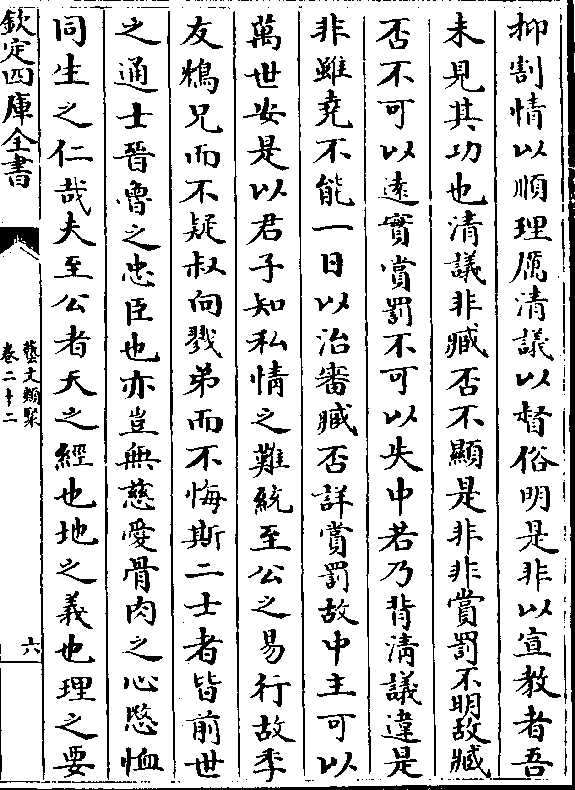 抑割情以順理厲清議以督俗明是非以宣教者吾
未見其功也清議非臧否不顯是非非賞罰不明故臧
否不可以遠實賞罰不可以失中若乃背清議違是
非雖堯不能一日以治審臧否詳賞罰故中主可以
萬世安是以君子知私情之難統至公之易行故季
友鴆兄而不疑叔向戮弟而不悔斯二士者皆前世
之通士晉魯之忠臣也亦豈無慈愛骨肉之心愍恤
同生之仁哉夫至公者天之經也地之義也理之要
欽定四庫全書
藝文類聚
卷二十二
六